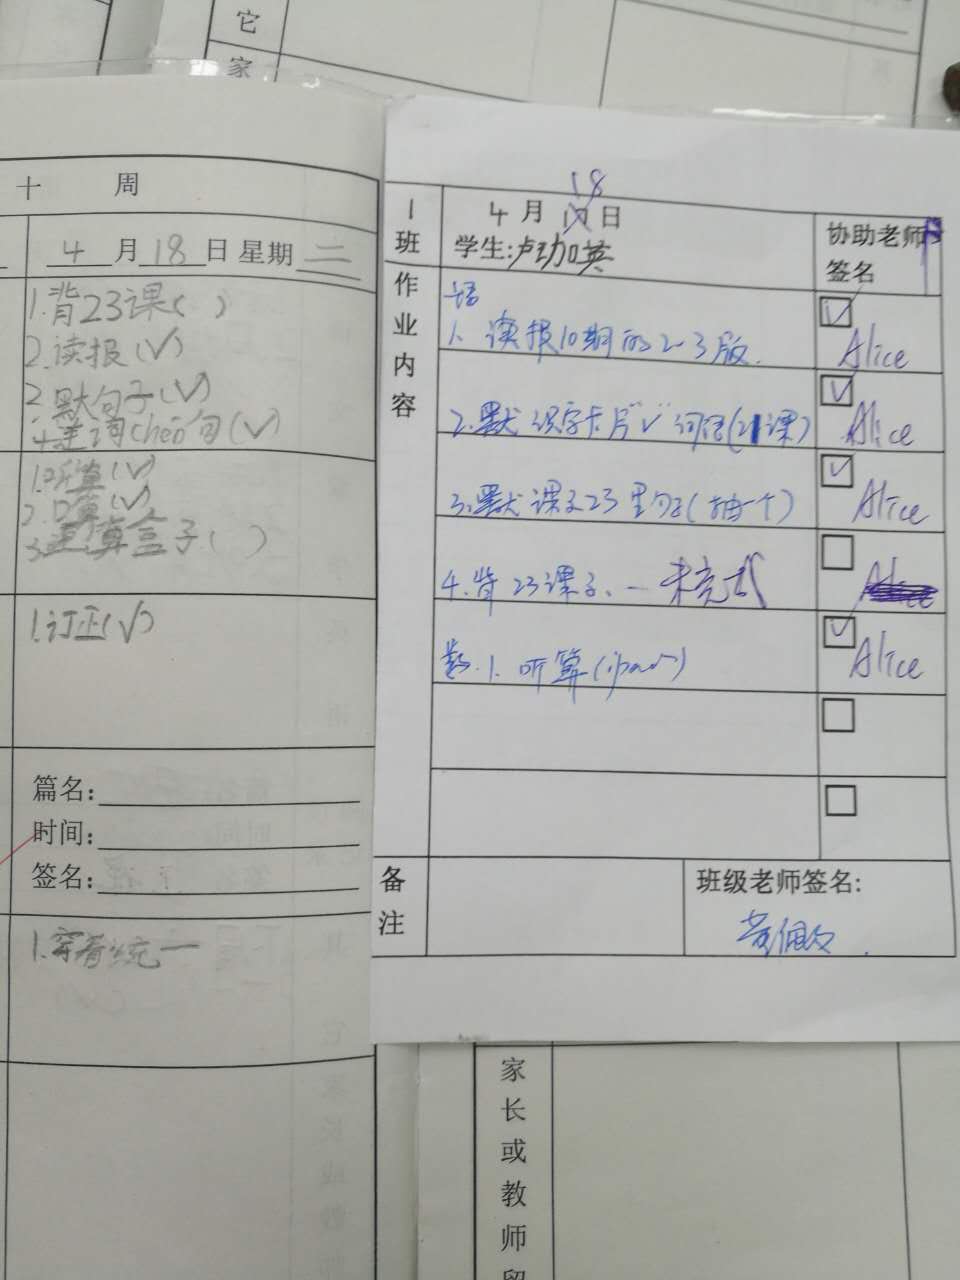 它
家
十 周
4月18日 星期二
1.背23课( )
2.读报(√)
2.默句子(√)
4.连词chéng句(√)
1.听算(√)
2.口算(√)
3.算盒子( )
1.订正(√)
篇名:
时间:
签名:
1.穿着统一
18
1班
4月 日
学生:卢劲英
协助老师
签名
作业内容
语
1. 读报10期的2~3版.
Alice
2.默识字卡片"√"词语(21课)
Alice
3.默课文23里句子(抽一个)
Alice
4.背23课 — 未完成
Alice
数.1. 听算
Alice
备注
班级老师签名:
家长或教师留